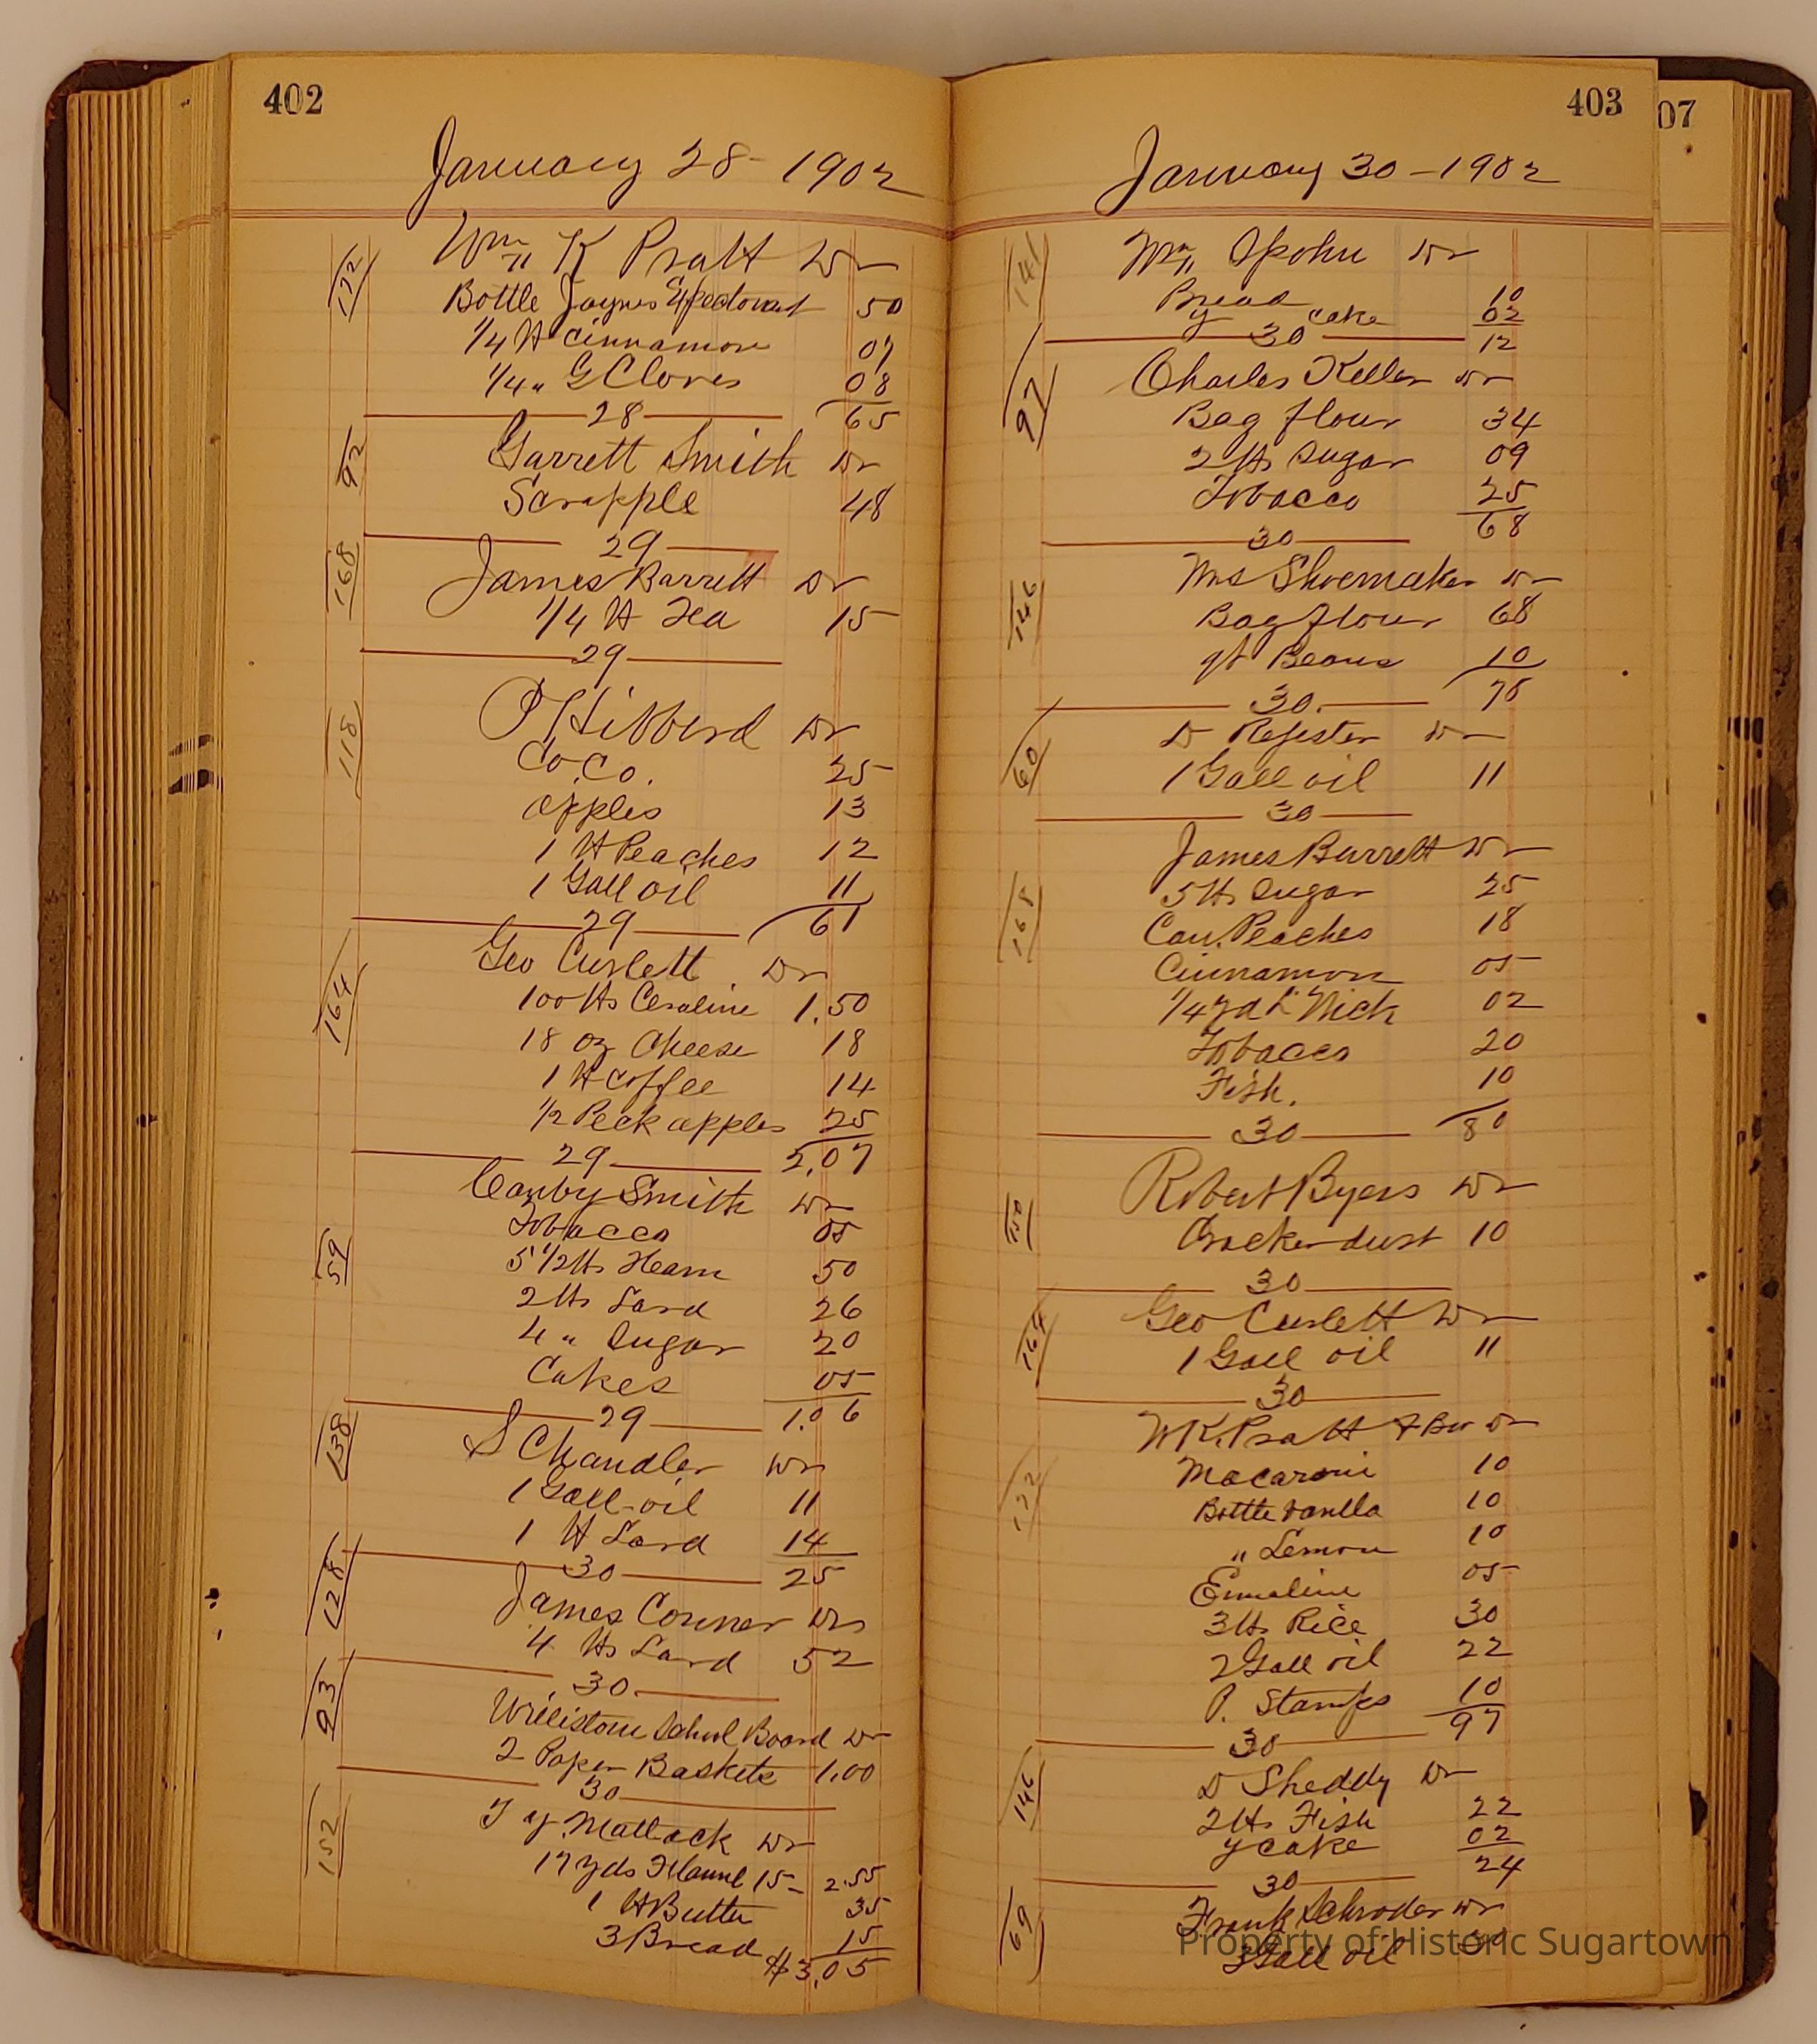 402
January 28 - 1902
122
Wm K Pratt Dr
Bottle Jaynes Expectorant 50
1/4 lb Cinnamon 07
1/4 " G Cloves 08
28 65
92
Garrett Smith Dr
Scrapple 48
29
168
James Barrett Dr
1/4 lb Tea 15
29
118
P Hibberd Dr
Co.Co. 25
apples 13
1 lb Peaches 12
1 Gall oil 11
29 61
164
Geo Curlett Dr
100 lbs Ceraline 1.50
18 oz Cheese 18
1 lb Coffee 14
1/2 Peck apples 25
29 2.07
59
Canby Smith Dr
Tobacco 05
5 1/2 lbs Ham 50
2 lbs Lard 26
4 " Sugar 20
Cakes 05
29 1.06
138
S Chandler Dr
1 Gall oil 11
1 lb Lard 14
30 25
128
James Conner Dr
4 lbs Lard 52
30
93
Willistown School Board Dr
2 Paper Baskets 1.00
30
152
Matlack Dr
17 yds Flannel 15 - 2.55
1 lb Butter 35
3 Bread 15
$3.05
403
January 30 - 1902
141
Wm Spohn Dr
Bread 10
y cake 02
30 12
97
Charles Keller Dr
Bag flour 34
2 lbs Sugar 09
Tobacco 25
30 68
146
Mrs Shoemaker Dr
Bag flour 68
qt Beans 10
30 78
60
D Register Dr
1 Gall oil 11
30
168
James Barrett Dr
5 lbs Sugar 25
Can Peaches 18
Cinnamon 05
1/4 yd L Wick 02
Tobacco 20
Fish. 10
30 80
150
Robert Byers Dr
Cracker dust 10
30
164
Geo Curlett Dr
1 Gall oil 11
30
122
W K. Pratt & Bro Dr
Macaroni 10
Bottle Vanilla 10
" Lemon 10
Enameline 05
3 lbs Rice 30
2 Gall oil 22
P. Stamps 10
30 97
146
D Sheddy Dr
2 lbs Fish 22
y cake 02
30 24
69
Frank Schroder Dr
3 Gall oil
Property of Historic Sugartown
07